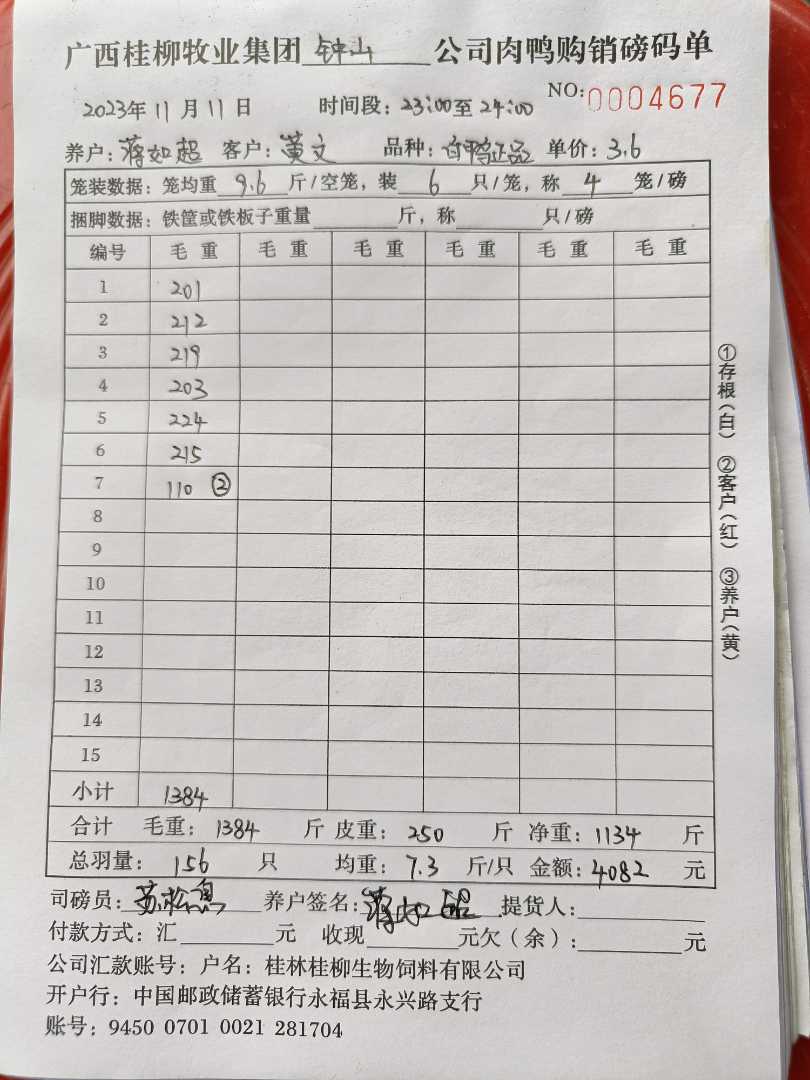 广西桂柳牧业集团 钟山 公司肉鸭购销磅码单
2023年 11月 11日 时间段: 23:00至 24:00 NO: 0004677
养户: 蒋如超 客户: 黄文 品种: 白鸭正品 单价: 3.6
笼装数据: 笼均重 9.6 斤/空笼, 装 6 只/笼, 称 4 笼/磅
捆脚数据: 铁筐或铁板子重量 斤, 称 只/磅
编号 毛重 毛重 毛重 毛重 毛重 毛重
1 201
2 212
3 219
4 203
5 224
6 215
7 110 ②
8
9
10
11
12
13
14
15
小计 1384
合计 毛重: 1384 斤 皮重: 250 斤 净重: 1134 斤
总羽量: 156 只 均重: 7.3 斤/只 金额: 4082 元
司磅员: 养户签名: 蒋如超 提货人:
付款方式: 汇 元 收现 元欠(余): 元
公司汇款账号: 户名: 桂林桂柳生物饲料有限公司
开户行: 中国邮政储蓄银行永福县永兴路支行
账号: 9450 0701 0021 281704
①存根(白) ②客户(红) ③养户(黄)